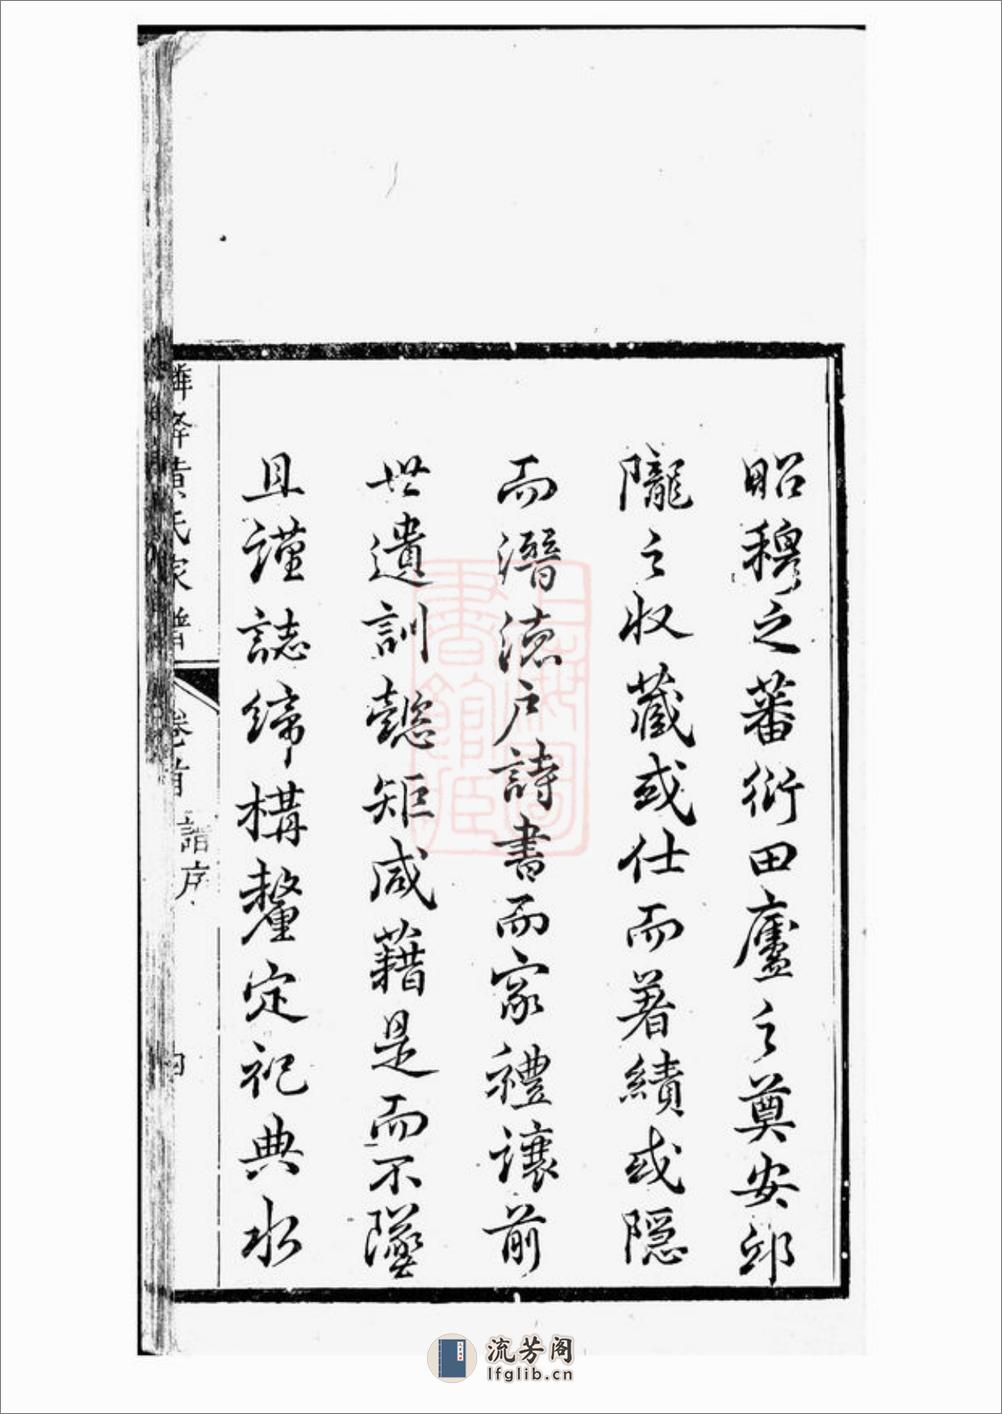 昭穆之蕃衍田廬之奠安邱
隴之收藏或仕而著績或隱
而潛德户詩書而家禮讓前
世遺訓懿矩咸藉是而不墜
且謹誌締構釐定祀典水
峰黄氏家譜
卷首
譜序
四
上海圖書館藏
流芳阁
lfglib.cn